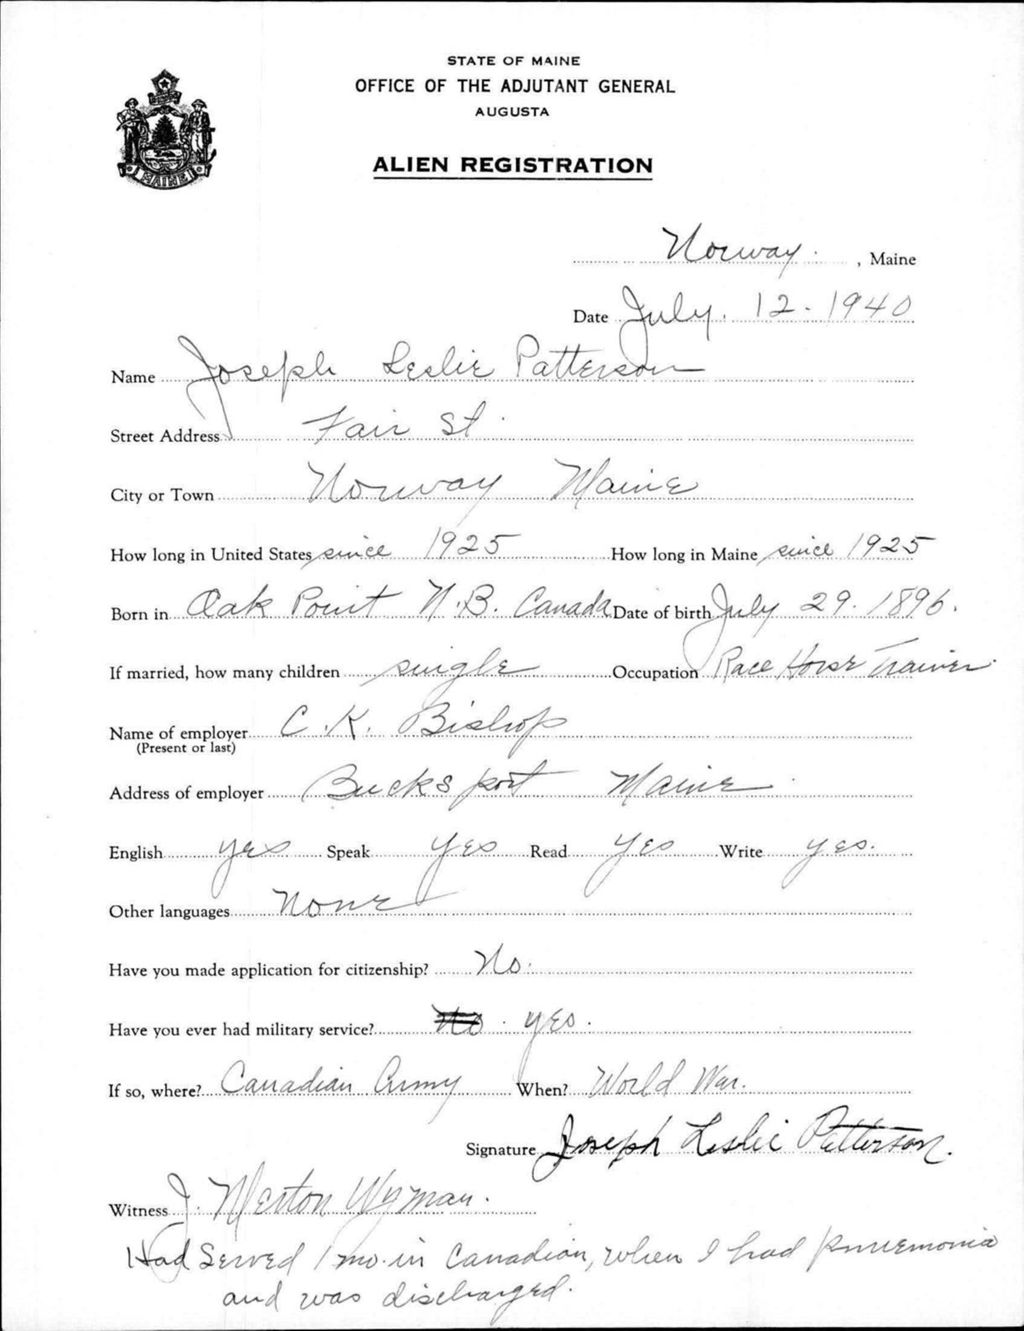 STATE OF MAINE
OFFICE OF THE ADJUTANT GENERAL
AUGUSTA
ALIEN REGISTRATION
MAINE
Norway. , Maine
Date July. 12 - 1940
Name Joseph Leslie Patterson
Street Address Fair St.
City or Town Norway Maine
How long in United States since 1925 How long in Maine since 1925
Born in Oak Point N.B. Canada Date of birth July 29. 1896.
If married, how many children single Occupation Race Horse Trainer.
Name of employer C.K. Bishop
(Present or last)
Address of employer Bucksport Maine
English yes Speak yes Read yes Write yes.
Other languages None
Have you made application for citizenship? No.
Have you ever had military service? No. yes.
If so, where? Canadian Army When? World War.
Signature Joseph Leslie Patterson.
Witness J. Merton Wyman.
Had Served 1 mo. in Canadian, when I had pnuemonia
and was discharged.